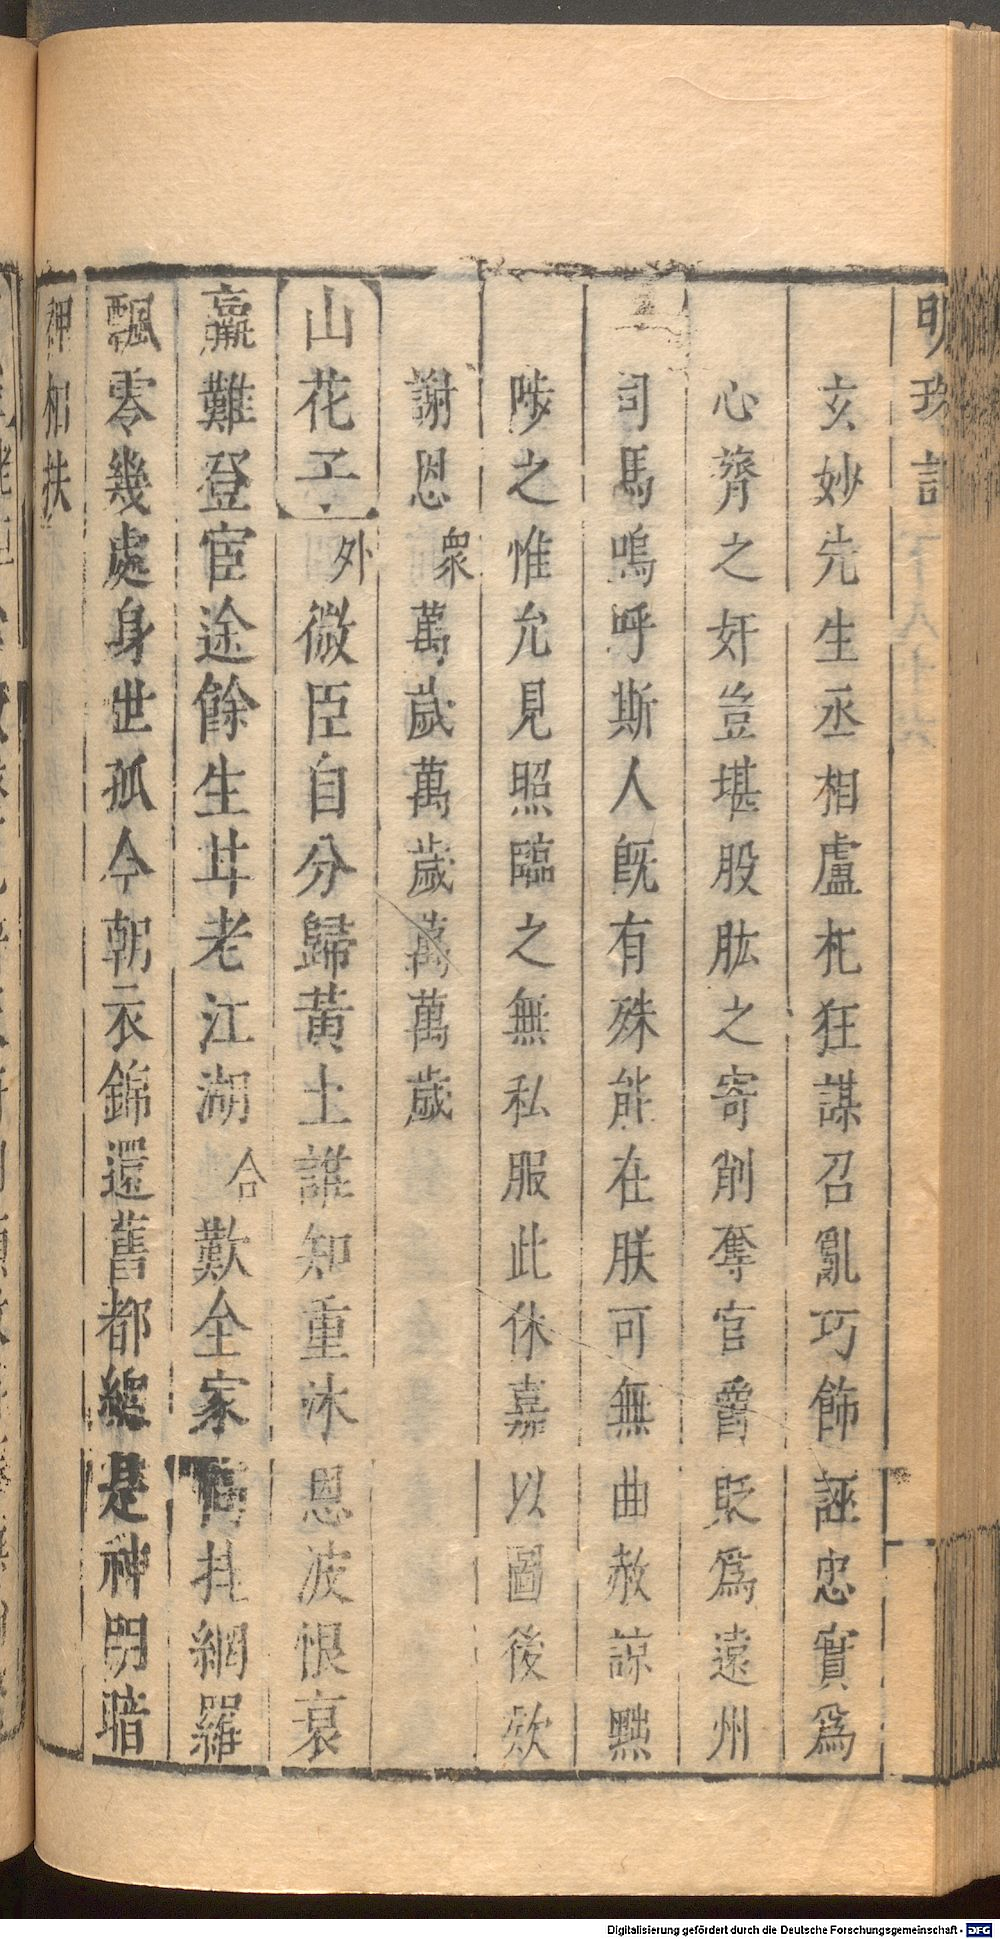 明珠記
玄妙先生丞相盧杞狂謀召亂巧飾誣忠實爲
心膂之奸豈堪股肱之寄削奪官爵貶爲遠州
司馬嗚呼斯人旣有殊能在朕可無曲赦諒黜
陟之惟允見照臨之無私服此休嘉以圖後效
謝恩衆萬歲萬歲萬萬歲
山花子外微臣自分歸黃土誰知重沐恩波恨衰
羸難登宦途餘生甘老江湖合歎全家掛網羅
飄零幾處身世孤今朝衣錦還舊都總是神明暗
裡相扶
Digitalisierung gefördert durch die Deutsche Forschungsgemeinschaft - DFG